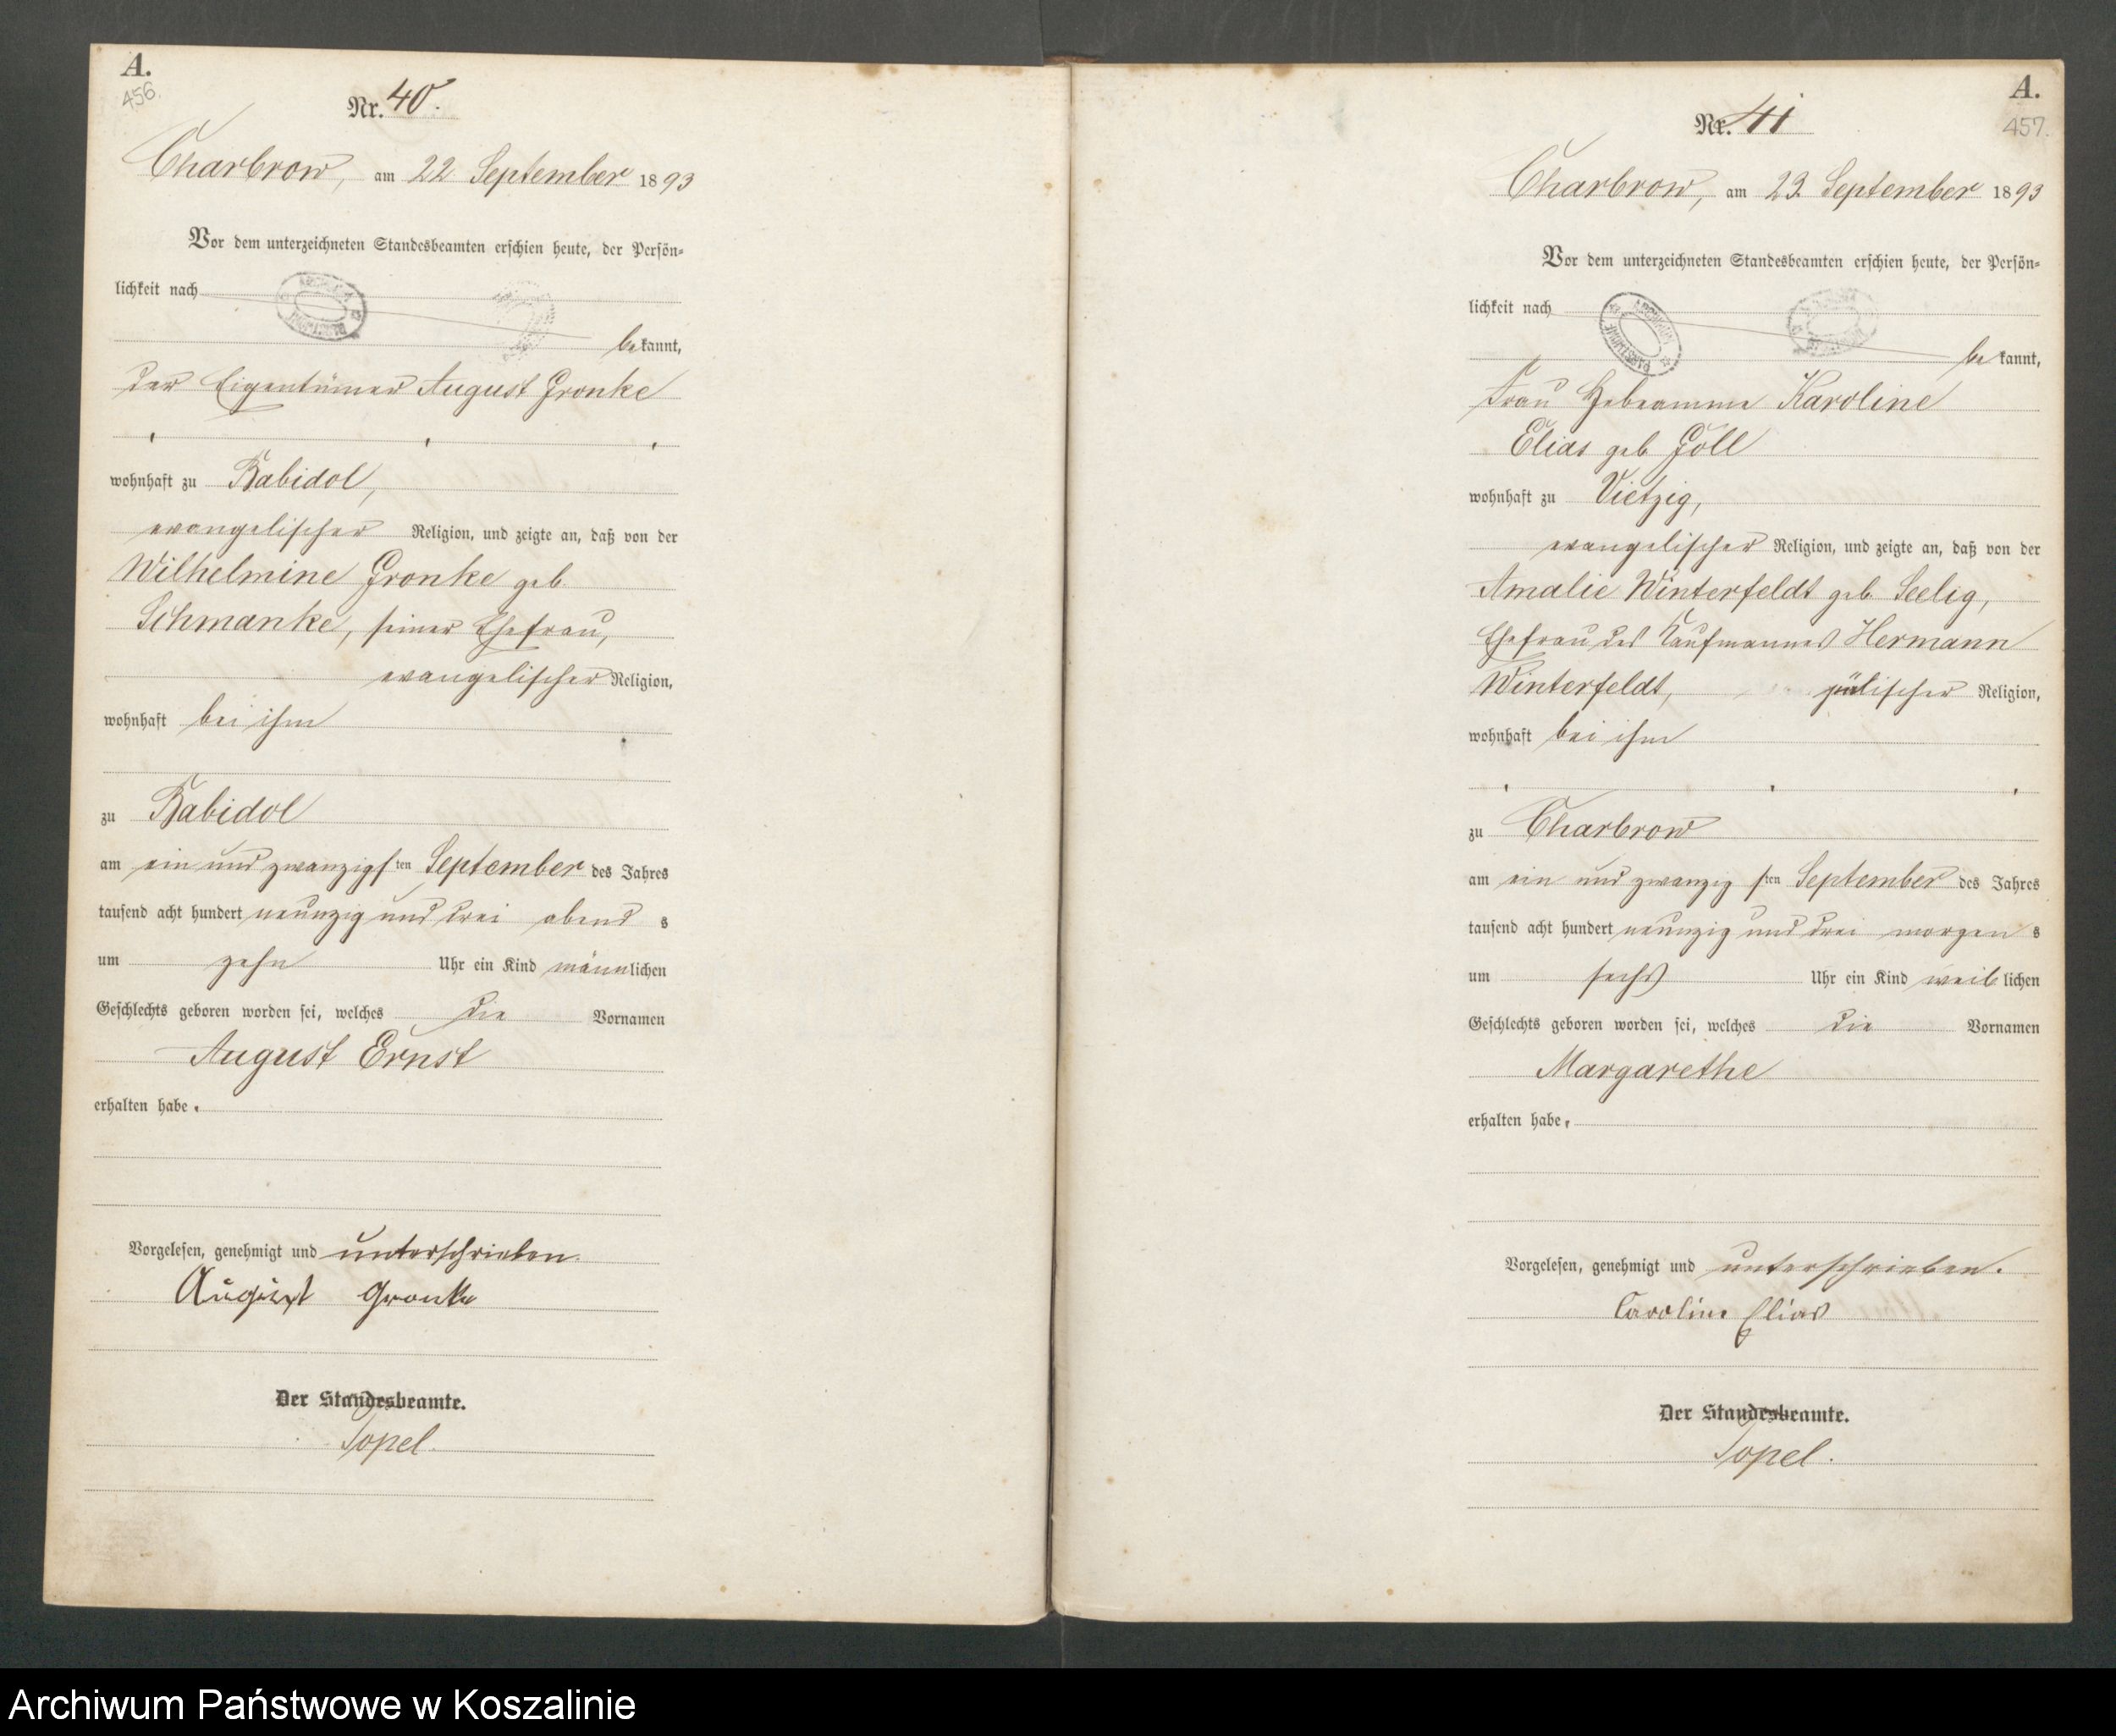 A.
456.
Nr. 40.
Charbrow, am 22 September 1893
Vor dem unterzeichneten Standesbeamten erschien heute, der Persön-
lichkeit nach
bekannt,
der Eigentümer August Gronke
wohnhaft zu Babidol,
evangelischer Religion, und zeigte an, daß von der
Wilhelmine Gronke geb.
Schmanke, seiner Ehefrau,
evangelischer Religion,
wohnhaft bei ihm
zu Babidol
am ein und zwanzigsten September des Jahres
tausend acht hundert neunzig und drei abends
um zehn Uhr ein Kind männlichen
Geschlechts geboren worden sei, welches die Vornamen
August Ernst
erhalten habe.
Vorgelesen, genehmigt und unterschrieben.
August Gronke
Der Standesbeamte.
Topel.
A.
457.
Nr. 41
Charbrow, am 23 September 1893
Vor dem unterzeichneten Standesbeamten erschien heute, der Persön-
lichkeit nach
bekannt,
Frau Hebeamme Karoline
Elias geb Göll
wohnhaft zu Vietzig,
evangelischer Religion, und zeigte an, daß von der
Amalie Winterfeldt geb. Seelig,
Ehefrau des Kaufmannes Hermann
Winterfeldt, jüdischer Religion,
wohnhaft bei ihm
zu Charbrow
am ein und zwanzigsten September des Jahres
tausend acht hundert neunzig und drei morgens
um sechs Uhr ein Kind weiblichen
Geschlechts geboren worden sei, welches die Vornamen
Margarethe
erhalten habe.
Vorgelesen, genehmigt und unterschrieben.
Caroline Elias
Der Standesbeamte.
Topel.
Archiwum Państwowe w Koszalinie